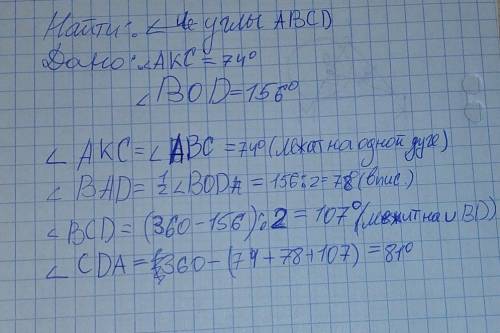 Найти: ∠ че углы ABCD
Дано: ∠AKC = 74°
∠BOD = 156°
∠ AKC = ∠ ABC = 74° (лежат на одной дуге)
∠ BAD = 1/2 ∠BOD = 156:2 = 78 (впис.)
∠ BCD = (360 - 156):2 = 107° (лежит на ∪ BD)
∠ CDA = 360 - (74 + 78 + 107) = 81°